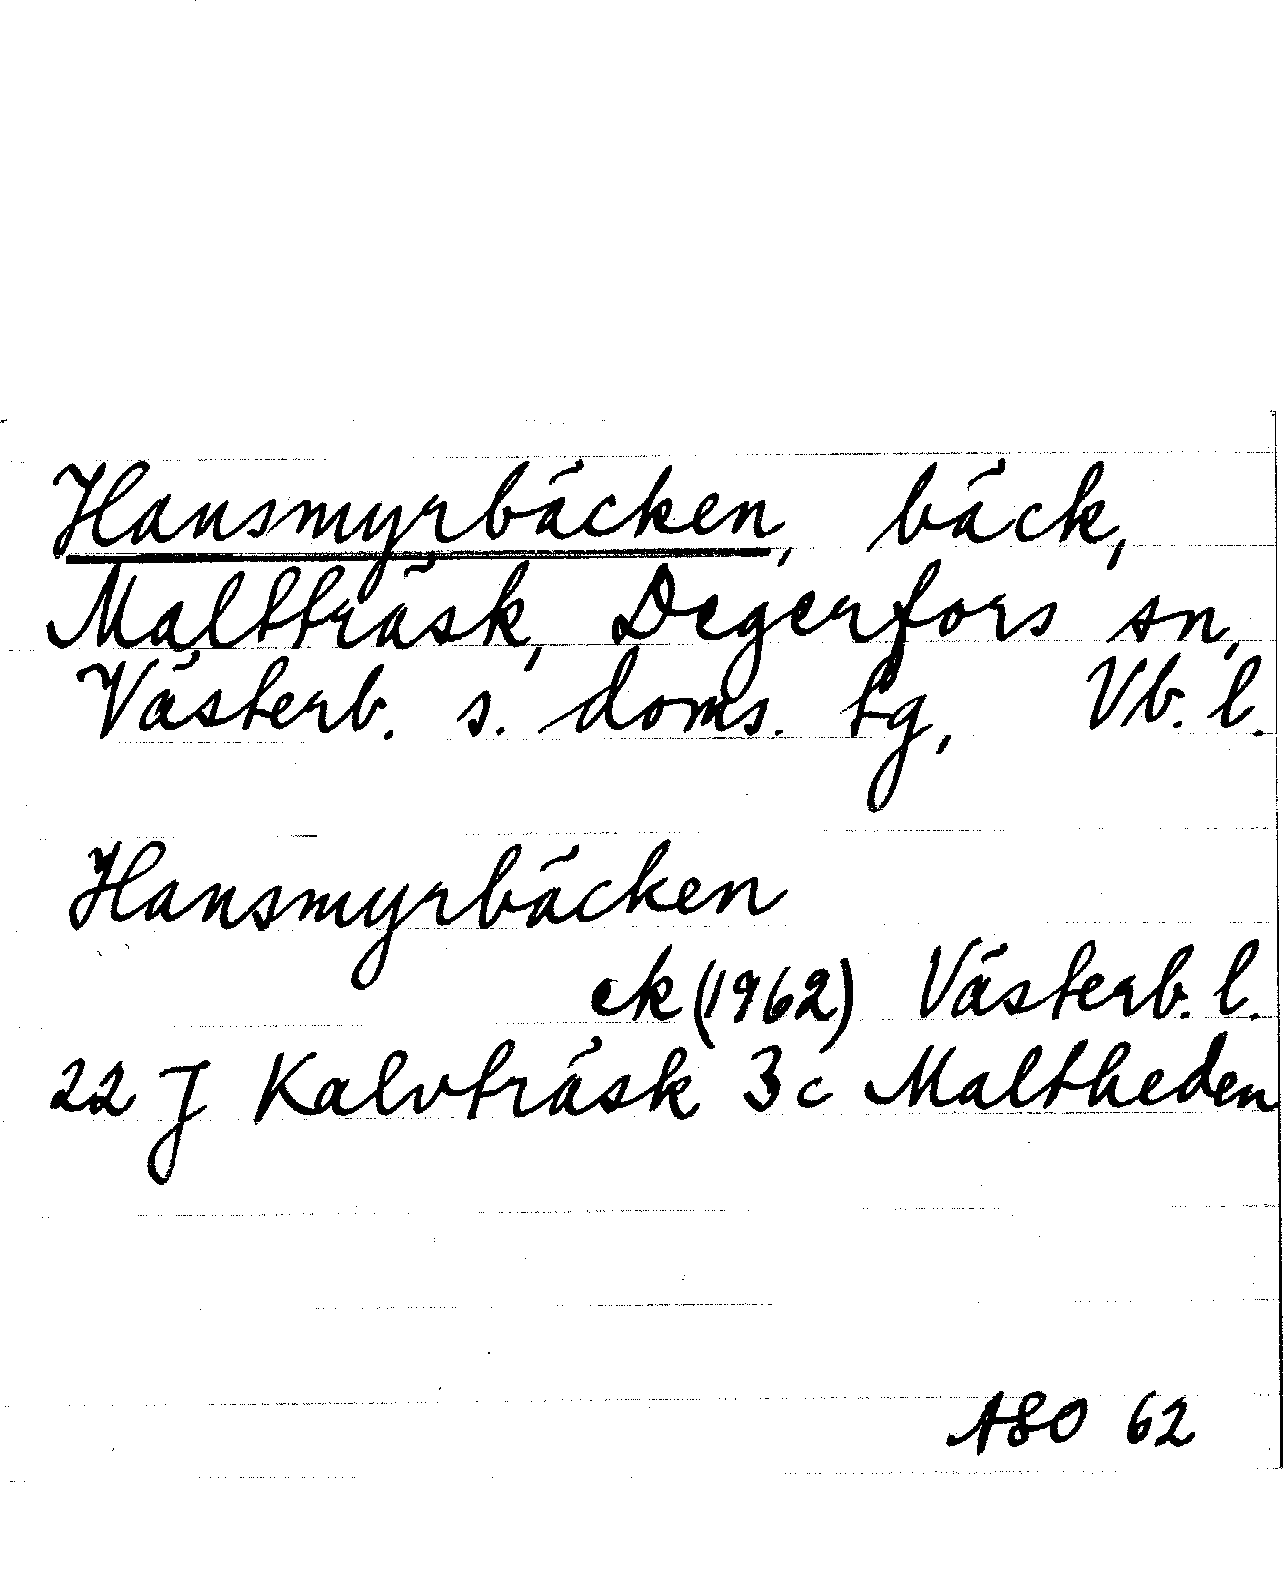 Hansmyrbäcken, bäck,
Maltträsk, Degerfors sn,
Västerb. s. doms. tg, Vb. l.
Hansmyrbäcken
ek (1962) Västerb. l.
22 J Kalvträsk 3 c Maltheden
ASO 62